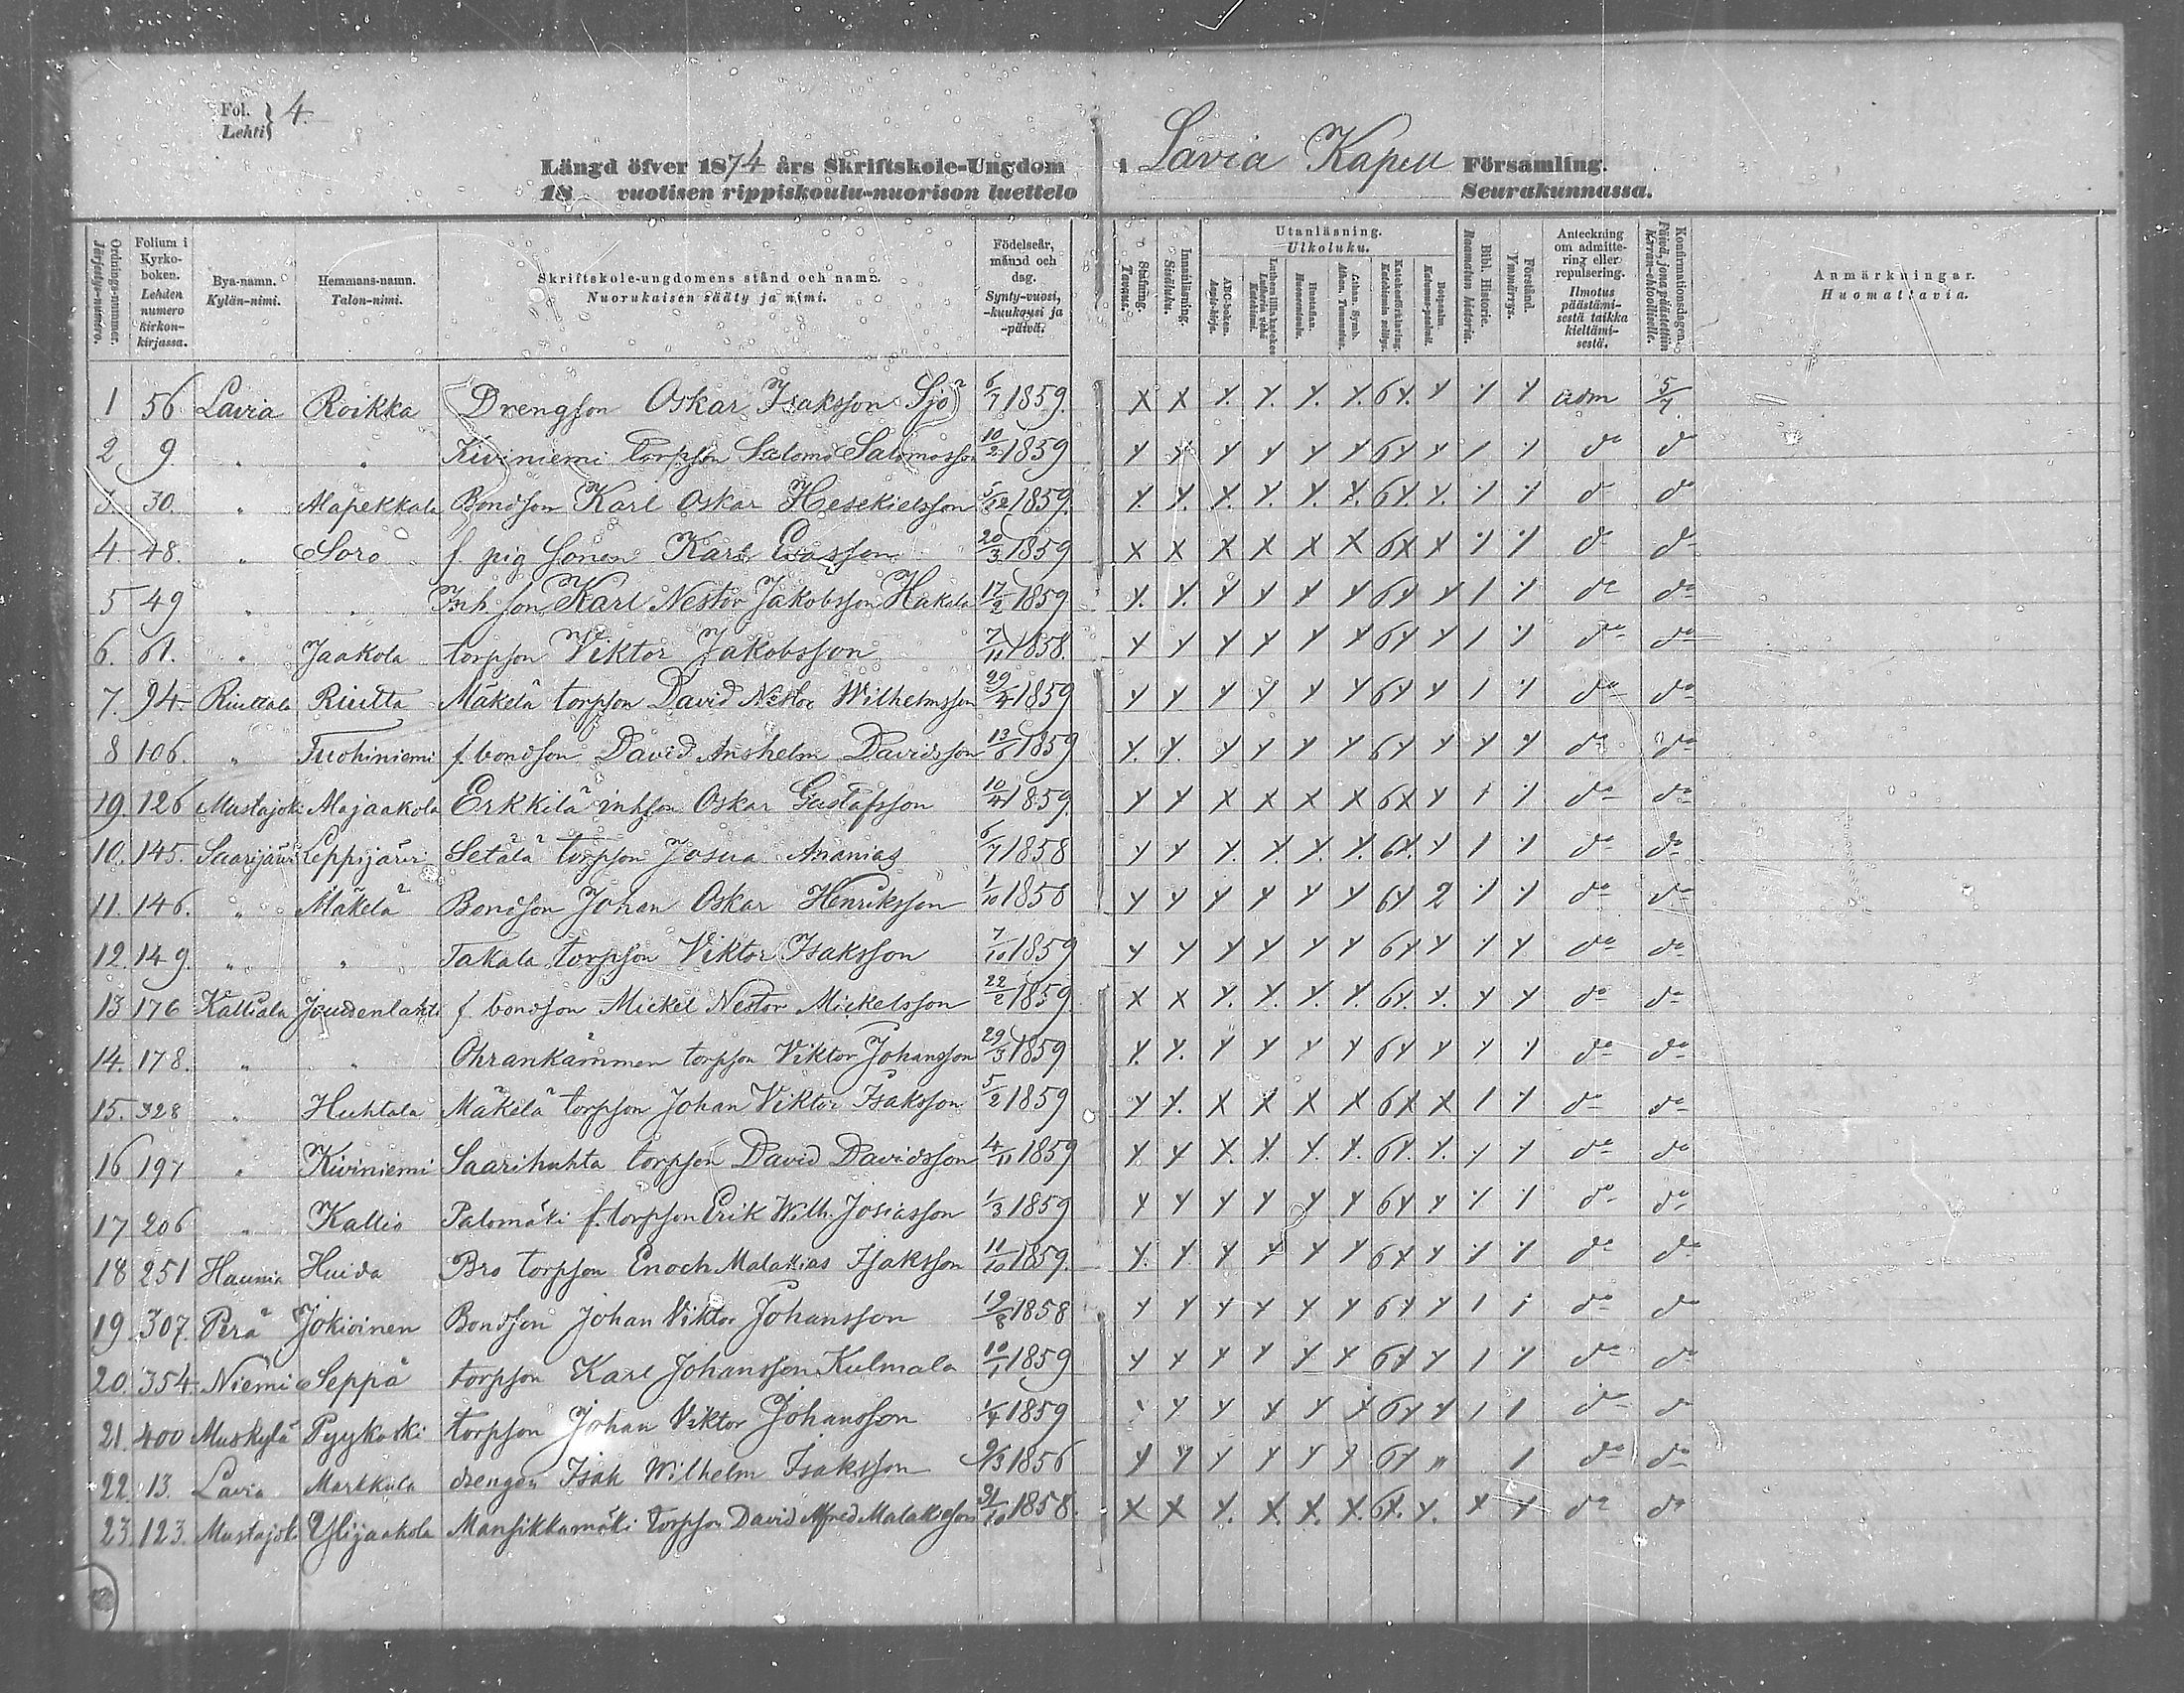 Fol. Lehti } 4.
Längd öfver 1874 års Skriftskole-Ungdom i Lavia Kapell Församling.
18 vuotisen rippiskoulu-nuorison luettelo Seurakunnassa.
Ordnings-nummer. Järjestys-numero.
Folium i Kyrko-boken. Lehden numero kirkon-kirjassa.
Bya-namn. Kylän-nimi.
Hemmans-namn. Talon-nimi.
Skriftskole-ungdomens stånd och namn. Nuorukaisen sääty ja nimi.
Födelseår, månad och dag. Synty-vuosi, -kuukausi ja -päivä.
Stafning. Tavaus.
Innanläsning. Sisäluku.
Utanläsning. Ulkoluku.
ABC-boken. Aapis-kirja.
Lutheri lilla kateches
Hustaflan. Huoneentaulu.
Athan. Symb. Athan. Tunnustus.
Katechesförklaring. Katekismin selitys.
Botpsalm. Katumus-psalmit.
Bibl. Historie. Raamatun historia.
Förstånd. Ymmärrys.
Anteckning om admittering eller repulsering. Ilmotus päästämisestä taikka kieltämisestä.
Konfirmationsdagen. Päivä, jona päästettiin Herran-ehtoolliselle.
Anmärkningar. Huomattavia.
1 56 Lavia Roikka Drengson Oskar Isaksson Sjö 6/7 1859. X X Y. Y. Y. Y. 6 Y. Y Y Y adm 5/7.
2 9. " " Kiviniemi torpson Salomo Salomosson 10/2 1859 Y Y Y Y Y Y 6 Y Y 1 Y do do
3 30. " Alapekkala Bondson Karl Oskar Hesekielsson 5/12 1859. Y. Y. Y. Y. Y. Y. 6 Y. Y. Y Y do do
4. 48. " Soro f. pig sonen Karl Evasson 20/3 1859 X X X X X X 6 X X Y Y do do
5 49 " " Inh. son Karl Nestor Jakobsson Hakala 17/2 1859 Y. Y. Y Y Y Y 6 Y Y 1 Y do do
6. 61. " Jaakola torpson Viktor Jakobsson 7/11 1858. Y Y Y Y Y Y 6 Y Y 1 Y do do
7. 94. Riuttala Riutta Mäkelä torpson David Nestor Wilhelmsson 29/4 1859 Y Y Y Y Y Y 6 Y Y 1 Y do do
8 106. " Tuohiniemi f. bondson David Anshelm Davidsson 13/6 1859 Y. Y. Y Y Y Y. 6 Y Y Y Y do do
19. 126 Mustajoki Alajaakola Erkkilä inhson Oskar Gustafsson 10/4 1859. Y Y X X X X 6 X Y 1 Y do do
10. 145. Saarijärvi Leppijärvi Setälä torpson Josua Ananias 6/7 1858 Y Y Y. Y. Y. Y. 6 Y. Y 1 Y do do
11. 146. " Mäkelä Bondson Johan Oskar Henriksson 1/10 1858 Y Y Y Y Y Y 6 Y 2 Y Y do do
12. 149. " " Takala torpson Viktor Isaksson 7/10 1859 Y Y Y Y Y Y 6 Y Y Y Y do do
13 176 Kalliala Joudenlahti f. bondson Mickel Nestor Mickelsson 22/2 1859. X X Y. Y. Y. Y. 6 Y. Y. Y Y do do
14. 178. " " Ohrankämmen torpson Viktor Johansson 29/3 1859 Y. Y. Y Y Y Y 6 Y Y Y Y do do
15. 328 " Huhtala Mäkelä torpson Johan Viktor Isaksson 5/2 1859 Y Y. X X X X 6 X X 1 Y do do
16 197 " Kiviniemi Saarihuhta torpson David Davidsson 4/11 1859 Y Y Y. Y. Y. Y. 6 Y. Y. Y Y do do
17 206 " Kallio Palomäki f. torpson Erik Wilh. Josiasson 1/3 1859 Y Y Y Y Y Y 6 Y Y Y Y do do
18 251 Haunia Huida Bro torpson Enoch Malakias Isaksson 11/10 1859. Y. Y Y Y Y Y 6 Y Y Y Y do do
19. 307. Perä Jokioinen Bondson Johan Viktor Johansson 19/8 1858 Y Y Y Y Y Y 6 Y Y 1 1 do do
20. 354 Niemi Seppä torpson Karl Johansson Kulmala 10/1 1859 Y Y Y Y Y Y 6 Y Y 1 Y do do
21. 400 Muskylä Pyykoski torpson Johan Viktor Johansson 1/4 1859 Y Y Y Y Y 6 Y Y 1 1 do do
22. 13. Lavia Markkula drengen Isak Wilhelm Isaksson 9/3 1856 Y Y Y Y Y Y 6 Y " 1 do do
23. 123. Mustajoki Ylijaakola Mansikkamäki torpson David Alfred Malakiasson 31/10 1858. X X Y. X. X. X. 6 X. Y. X Y do do